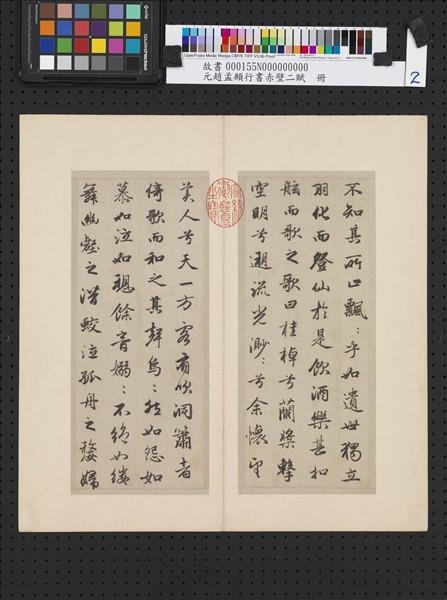 Ugra/Fogra Media Wedge CMYK TIFF V3.0b Proof
故書 000155N000000000
元趙孟頫行書赤壁二賦 冊
2
不知其所止飄〻乎如遺世獨立
羽化而登仙於是飲酒樂甚扣
舷而歌之歌曰桂棹兮蘭槳擊
空明兮遡流光渺〻兮余懷望
美人兮天一方客有吹洞簫者
倚歌而和之其聲烏〻然如怨如
慕如泣如愬餘音嫋〻不絕如縷
舞幽壑之潛蛟泣孤舟之嫠婦